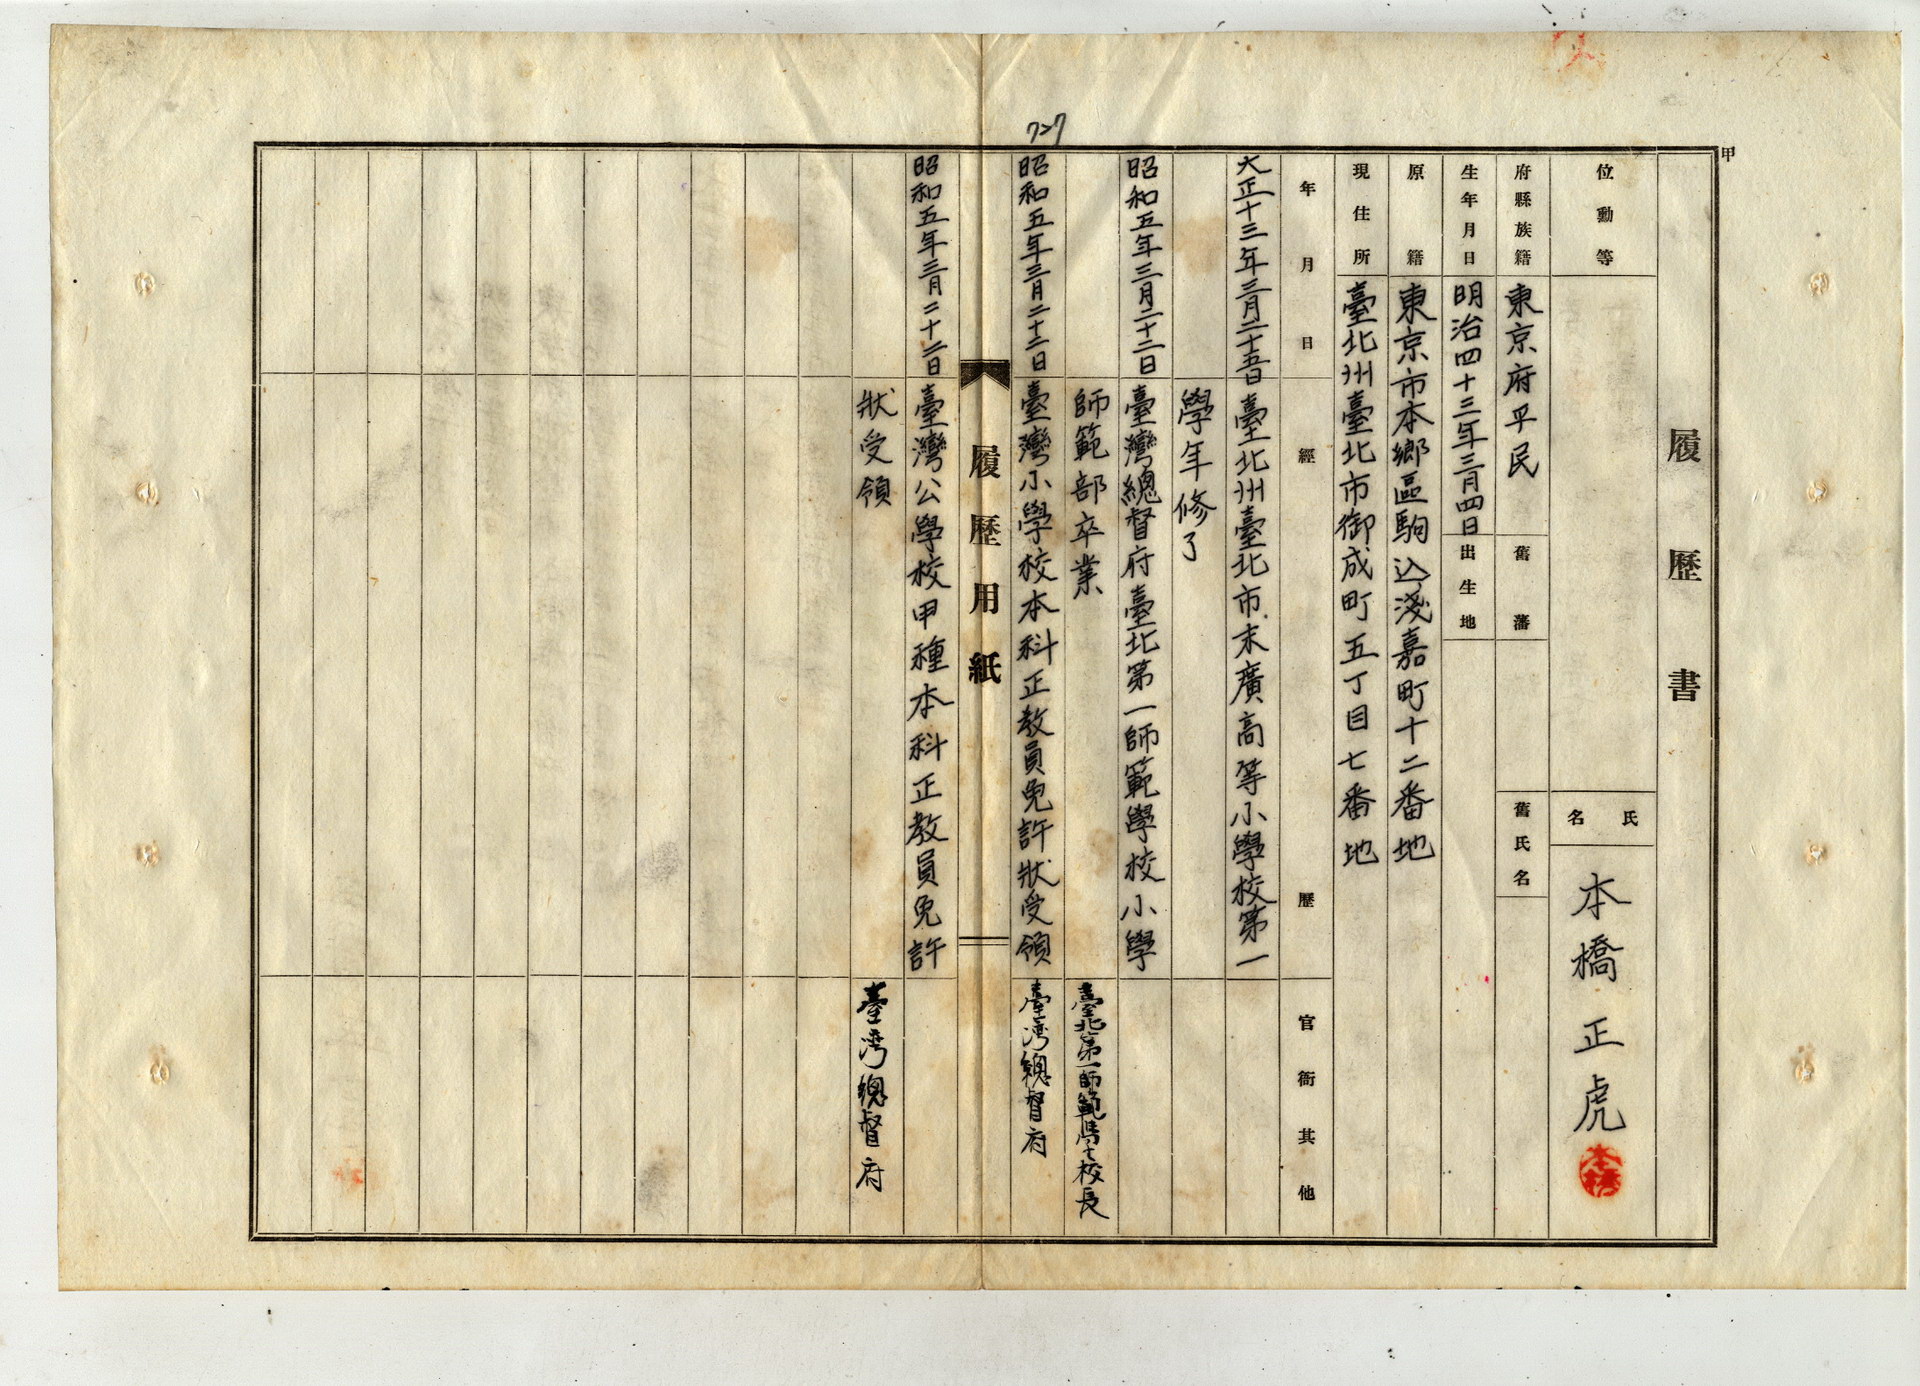 甲
履歷書
位勳等
氏名
本橋正虎
本橋
府縣族籍
東京府平民
舊藩
舊氏名
生年月日
明治四十三年三月四日
出生地
原籍
東京市本鄉區駒込淺嘉町十二番地
現住所
臺北州臺北市御成町五丁目七番地
年月日
經歷
官衙其他
大正十三年三月二十五日
臺北州臺北市末廣高等小學校第一
學年修了
昭和五年三月二十二日
臺灣總督府臺北第一師範學校小學
師範部卒業
臺北第一師範學校長
727
昭和五年三月二十二日
臺灣小學校本科正教員免許狀受領
臺湾總督府
履歷用紙
昭和五年三月二十二日
臺灣公學校甲種本科正教員免許
狀受領
臺湾總督府